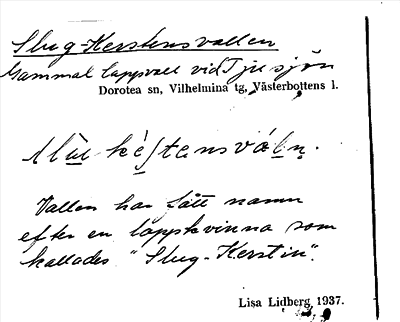 Slug-Kerstensvallen
Gammal lappvall vid Tjusjön
Dorotea sn, Vilhelmina tg, Västerbottens l.
Vallen har fått namn
efter en lappkvinna som
kallades "Slug-Kerstin".
Lisa Lidberg 1937.